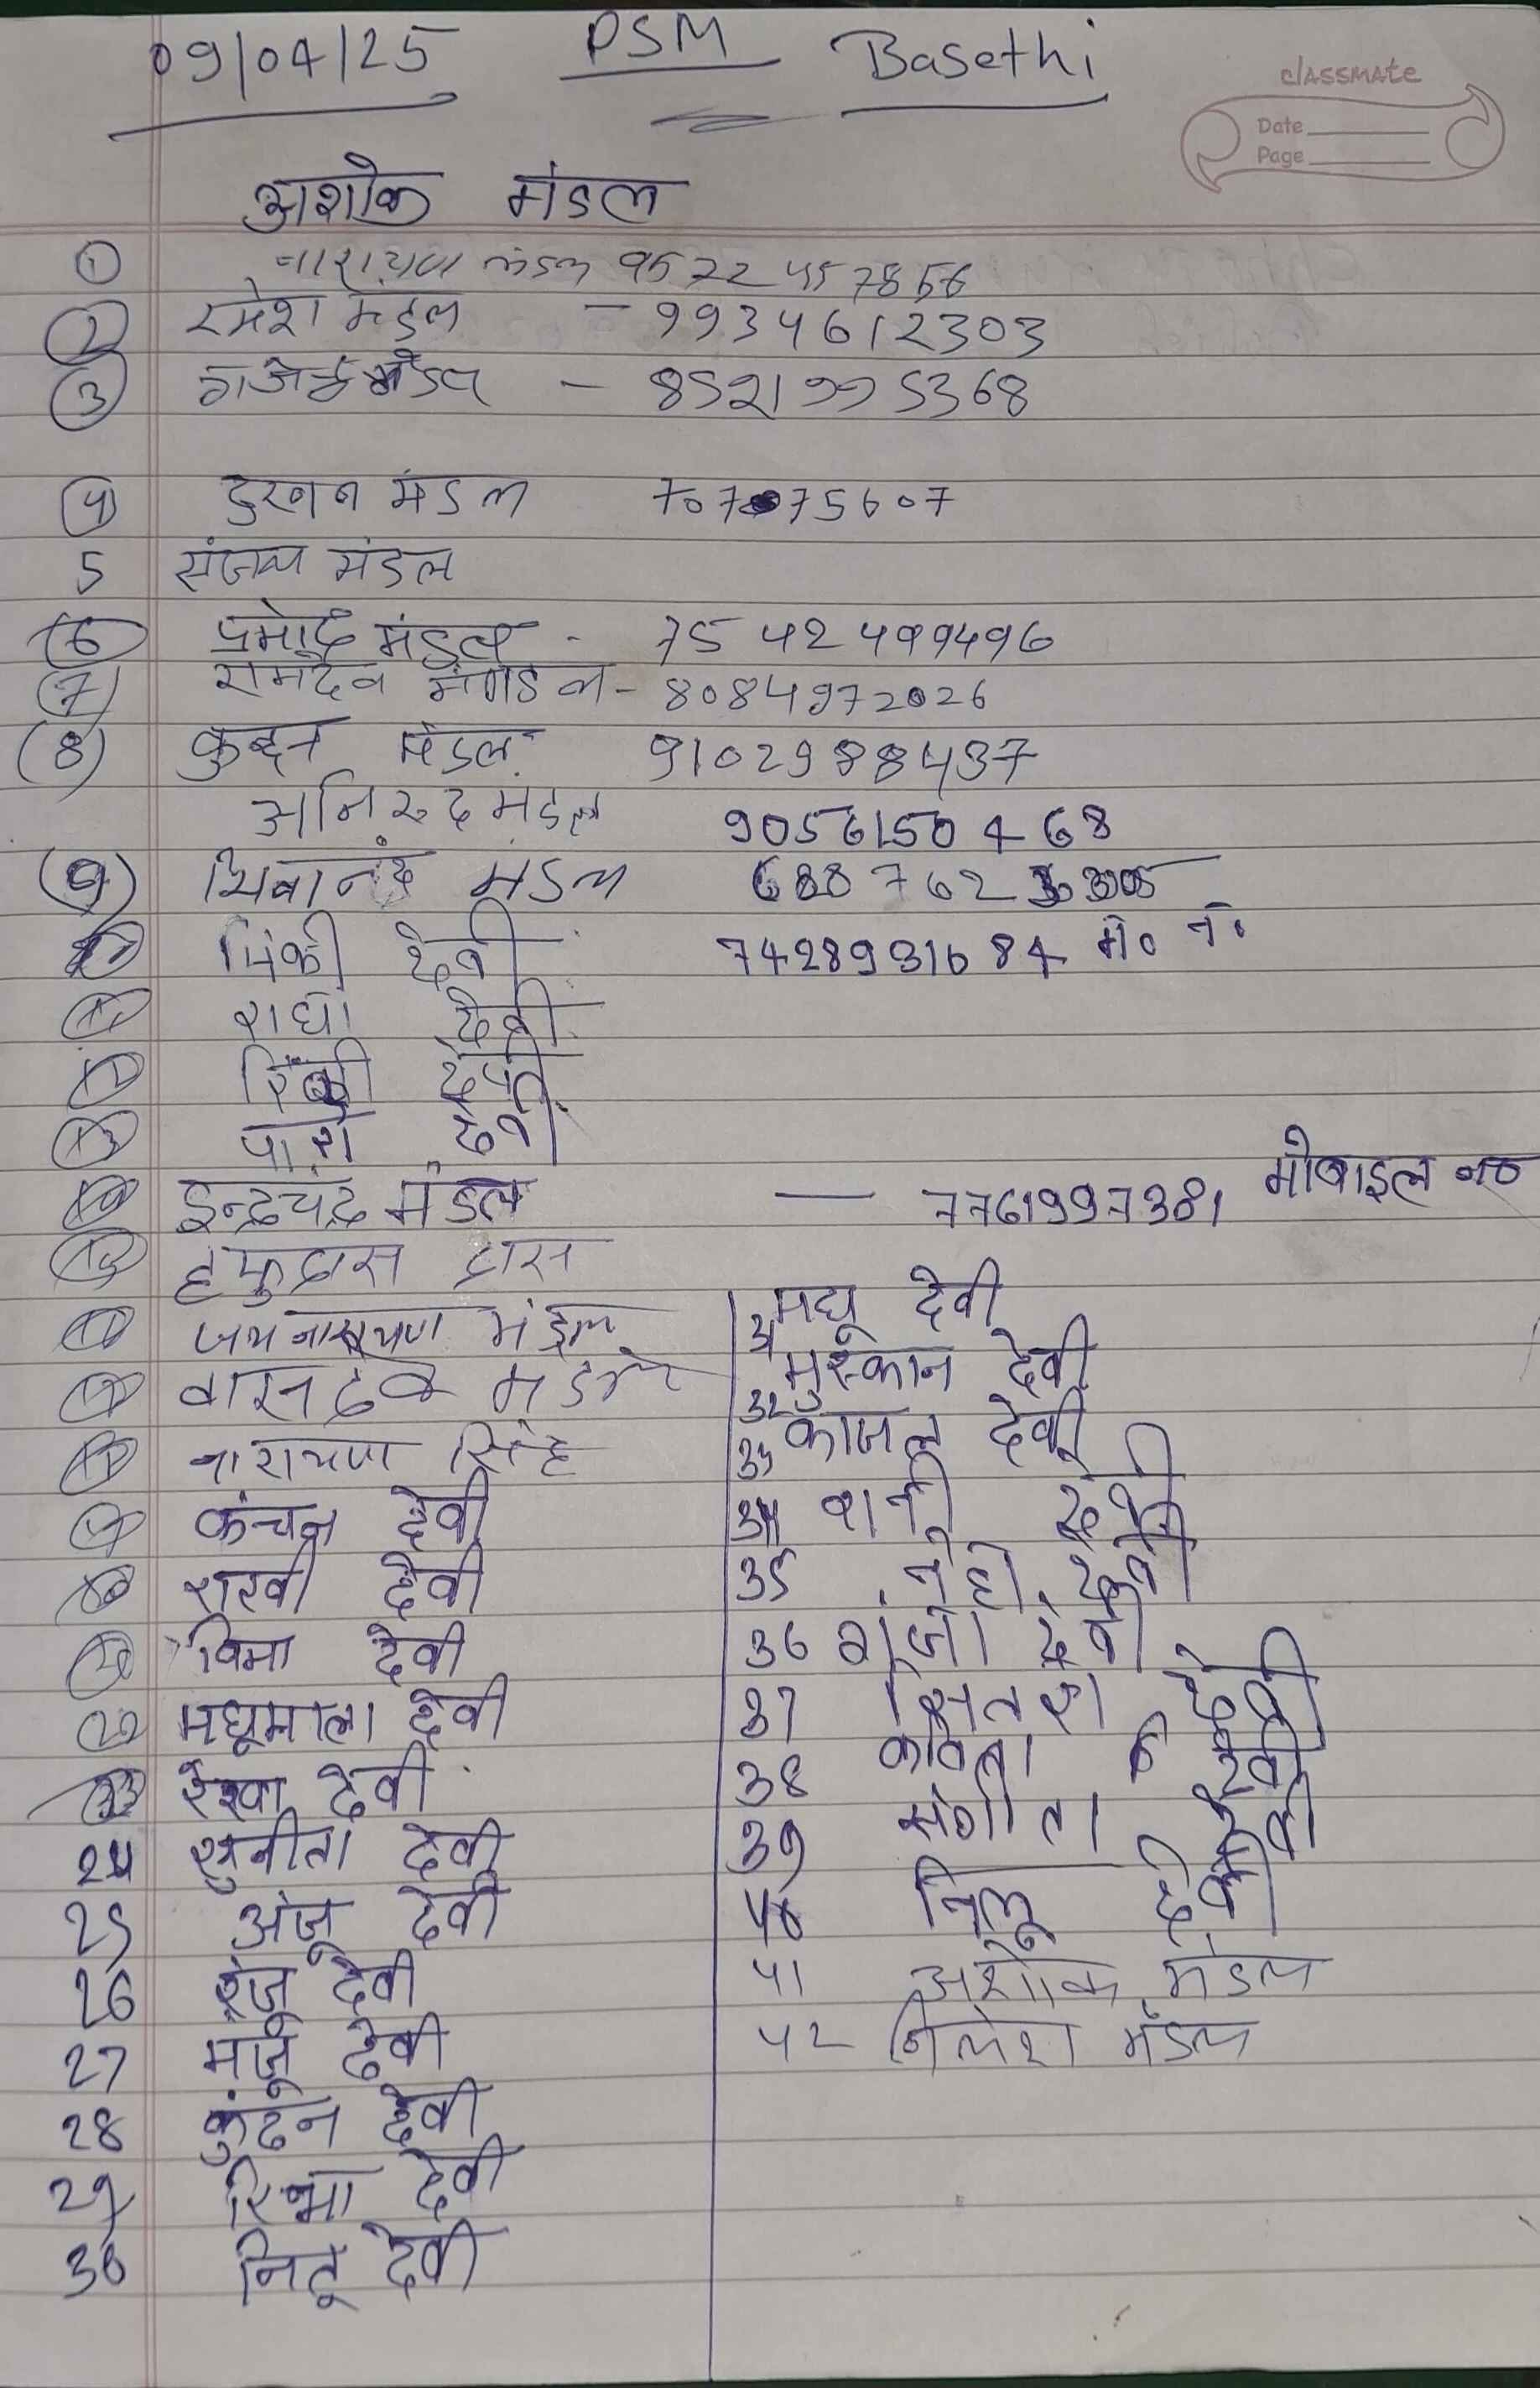 09/04/25 PSM Basethi
classmate
Date
Page
अशोक मंडल
① नारायण मंडल
② रमेश मंडल - 9934612303
③ मंडल - 8521995368
④ दुखन मंडल
5 संजय मंडल
(6) प्रमोद मंडल - 7542499496
(7) रामदेव मण्डल - 8084972026
(8) कुन्दन मंडल 9102988437
अनिरुद मंडल 9056150468
(9) शिवानंद मंडल
पिंकी देवी 7428931684 मो० नं०
राधा देवी
रिंकी देवी
पारो देवी
इन्द्रचंद्र मंडल — 7761997381 मोबाइल न०
दास
जयनारायण मंडल
वासुदेव मंडल
नारायण सिंह
कंचन देवी
राखी देवी
विभा देवी
22 मधुमाला देवी
23 रेखा देवी
24 सुनीता देवी
25 अंजू देवी
26 रंजू देवी
27 मंजू देवी
28 कुंदन देवी
29 देवी
30 नितू देवी
31 मधू देवी
32 मुस्कान देवी
33 काजल देवी
34 देवी
35 नेहा देवी
36 देवी
37 देवी
38 कविता देवी
39 संगीता देवी
40 निलू देवी
41 अशोक मंडल
42 निलेश मंडल